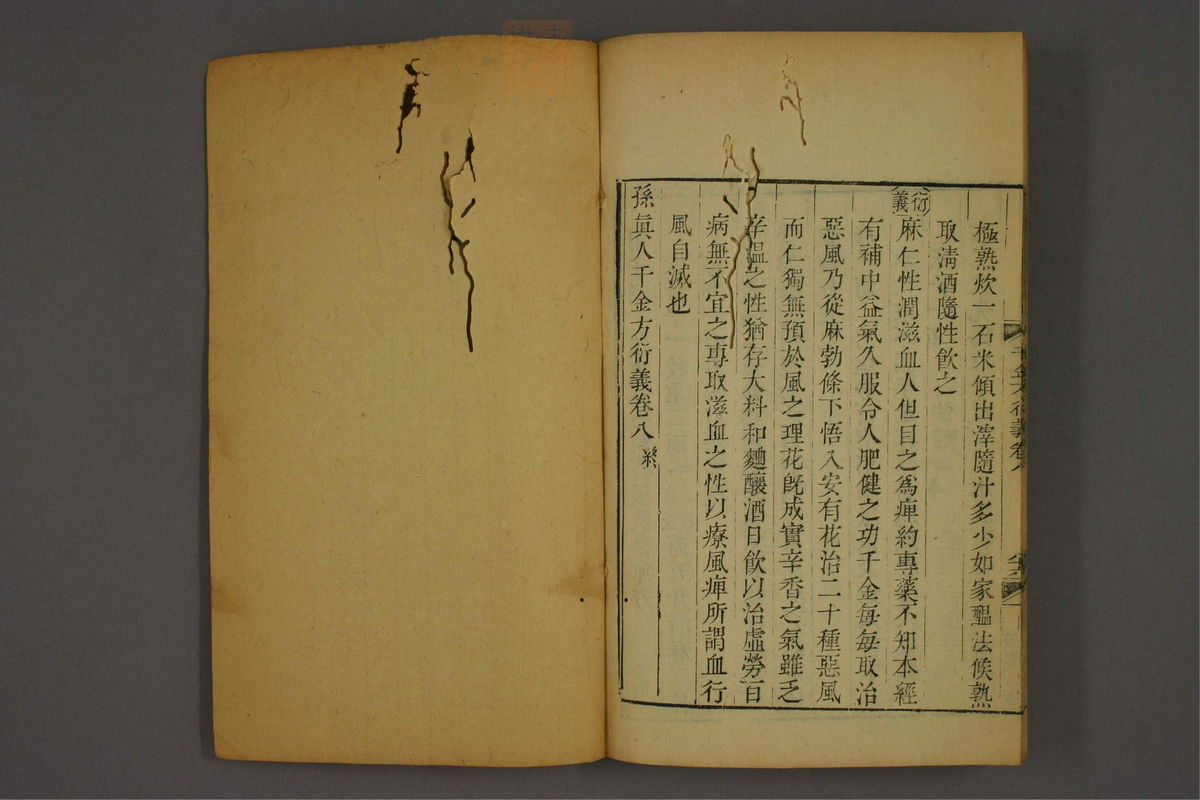 極熟炊一石米傾出滓隨汁多少如家醞法候熟
取淸酒隨性飲之
衍義
麻仁性潤滋血人但目之爲痺約專藥不知本經
有補中益氣久服令人肥健之功千金每每取治
惡風乃從麻勃條下悟入安有花治二十種惡風
而仁獨無預於風之理花旣成實辛香之氣雖乏
辛溫之性猶存大料和麯釀酒日飲以治虛勞百
病無不宜之專取滋血之性以療風痺所謂血行
風自滅也
孫眞人千金方衍義卷八 終
千金方衍義卷八